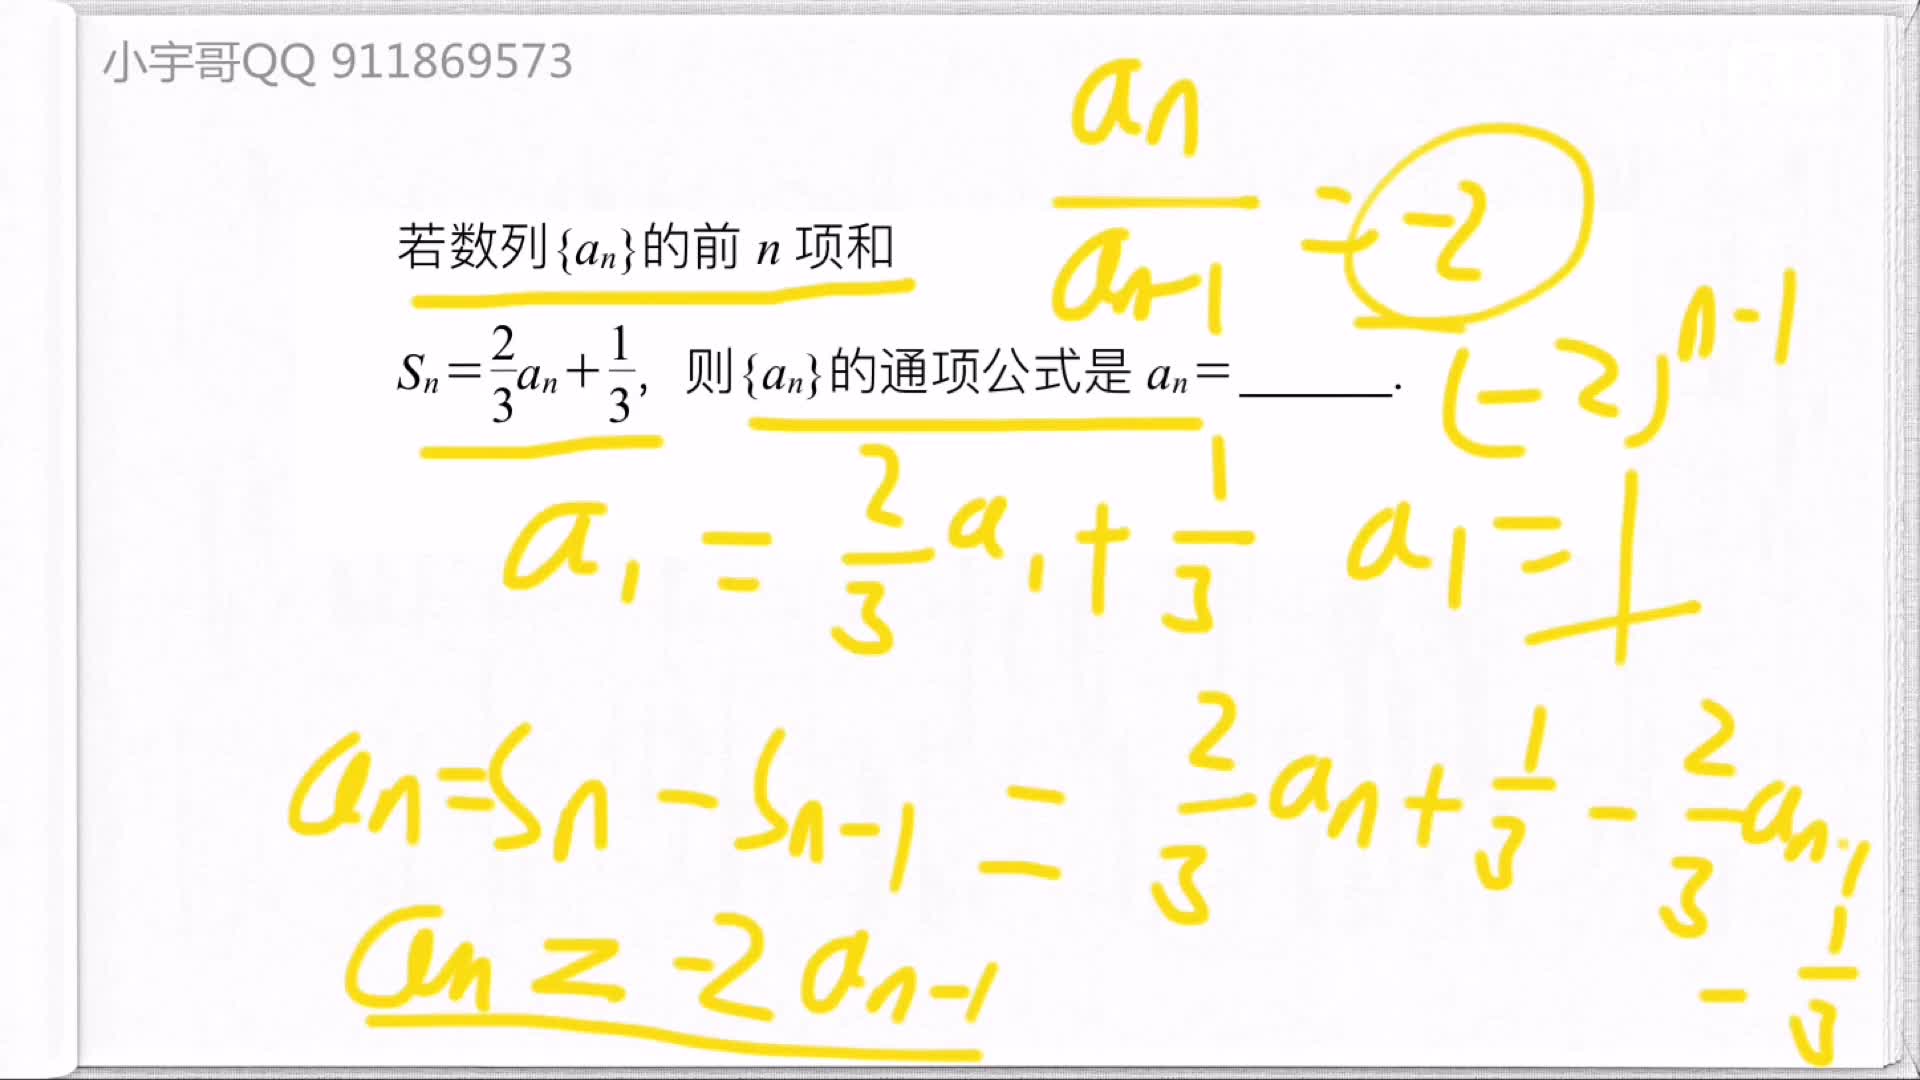 小宇哥QQ 911869573
若数列{aₙ}的前 n 项和
Sₙ=2/3aₙ+1/3, 则{aₙ}的通项公式是 aₙ=______.
aₙ/aₙ₋₁=-2
(-2)ⁿ⁻¹
a₁=2/3a₁+1/3 a₁=1
aₙ=Sₙ-Sₙ₋₁=2/3aₙ+1/3-2/3aₙ₋₁-1/3
aₙ=-2aₙ₋₁